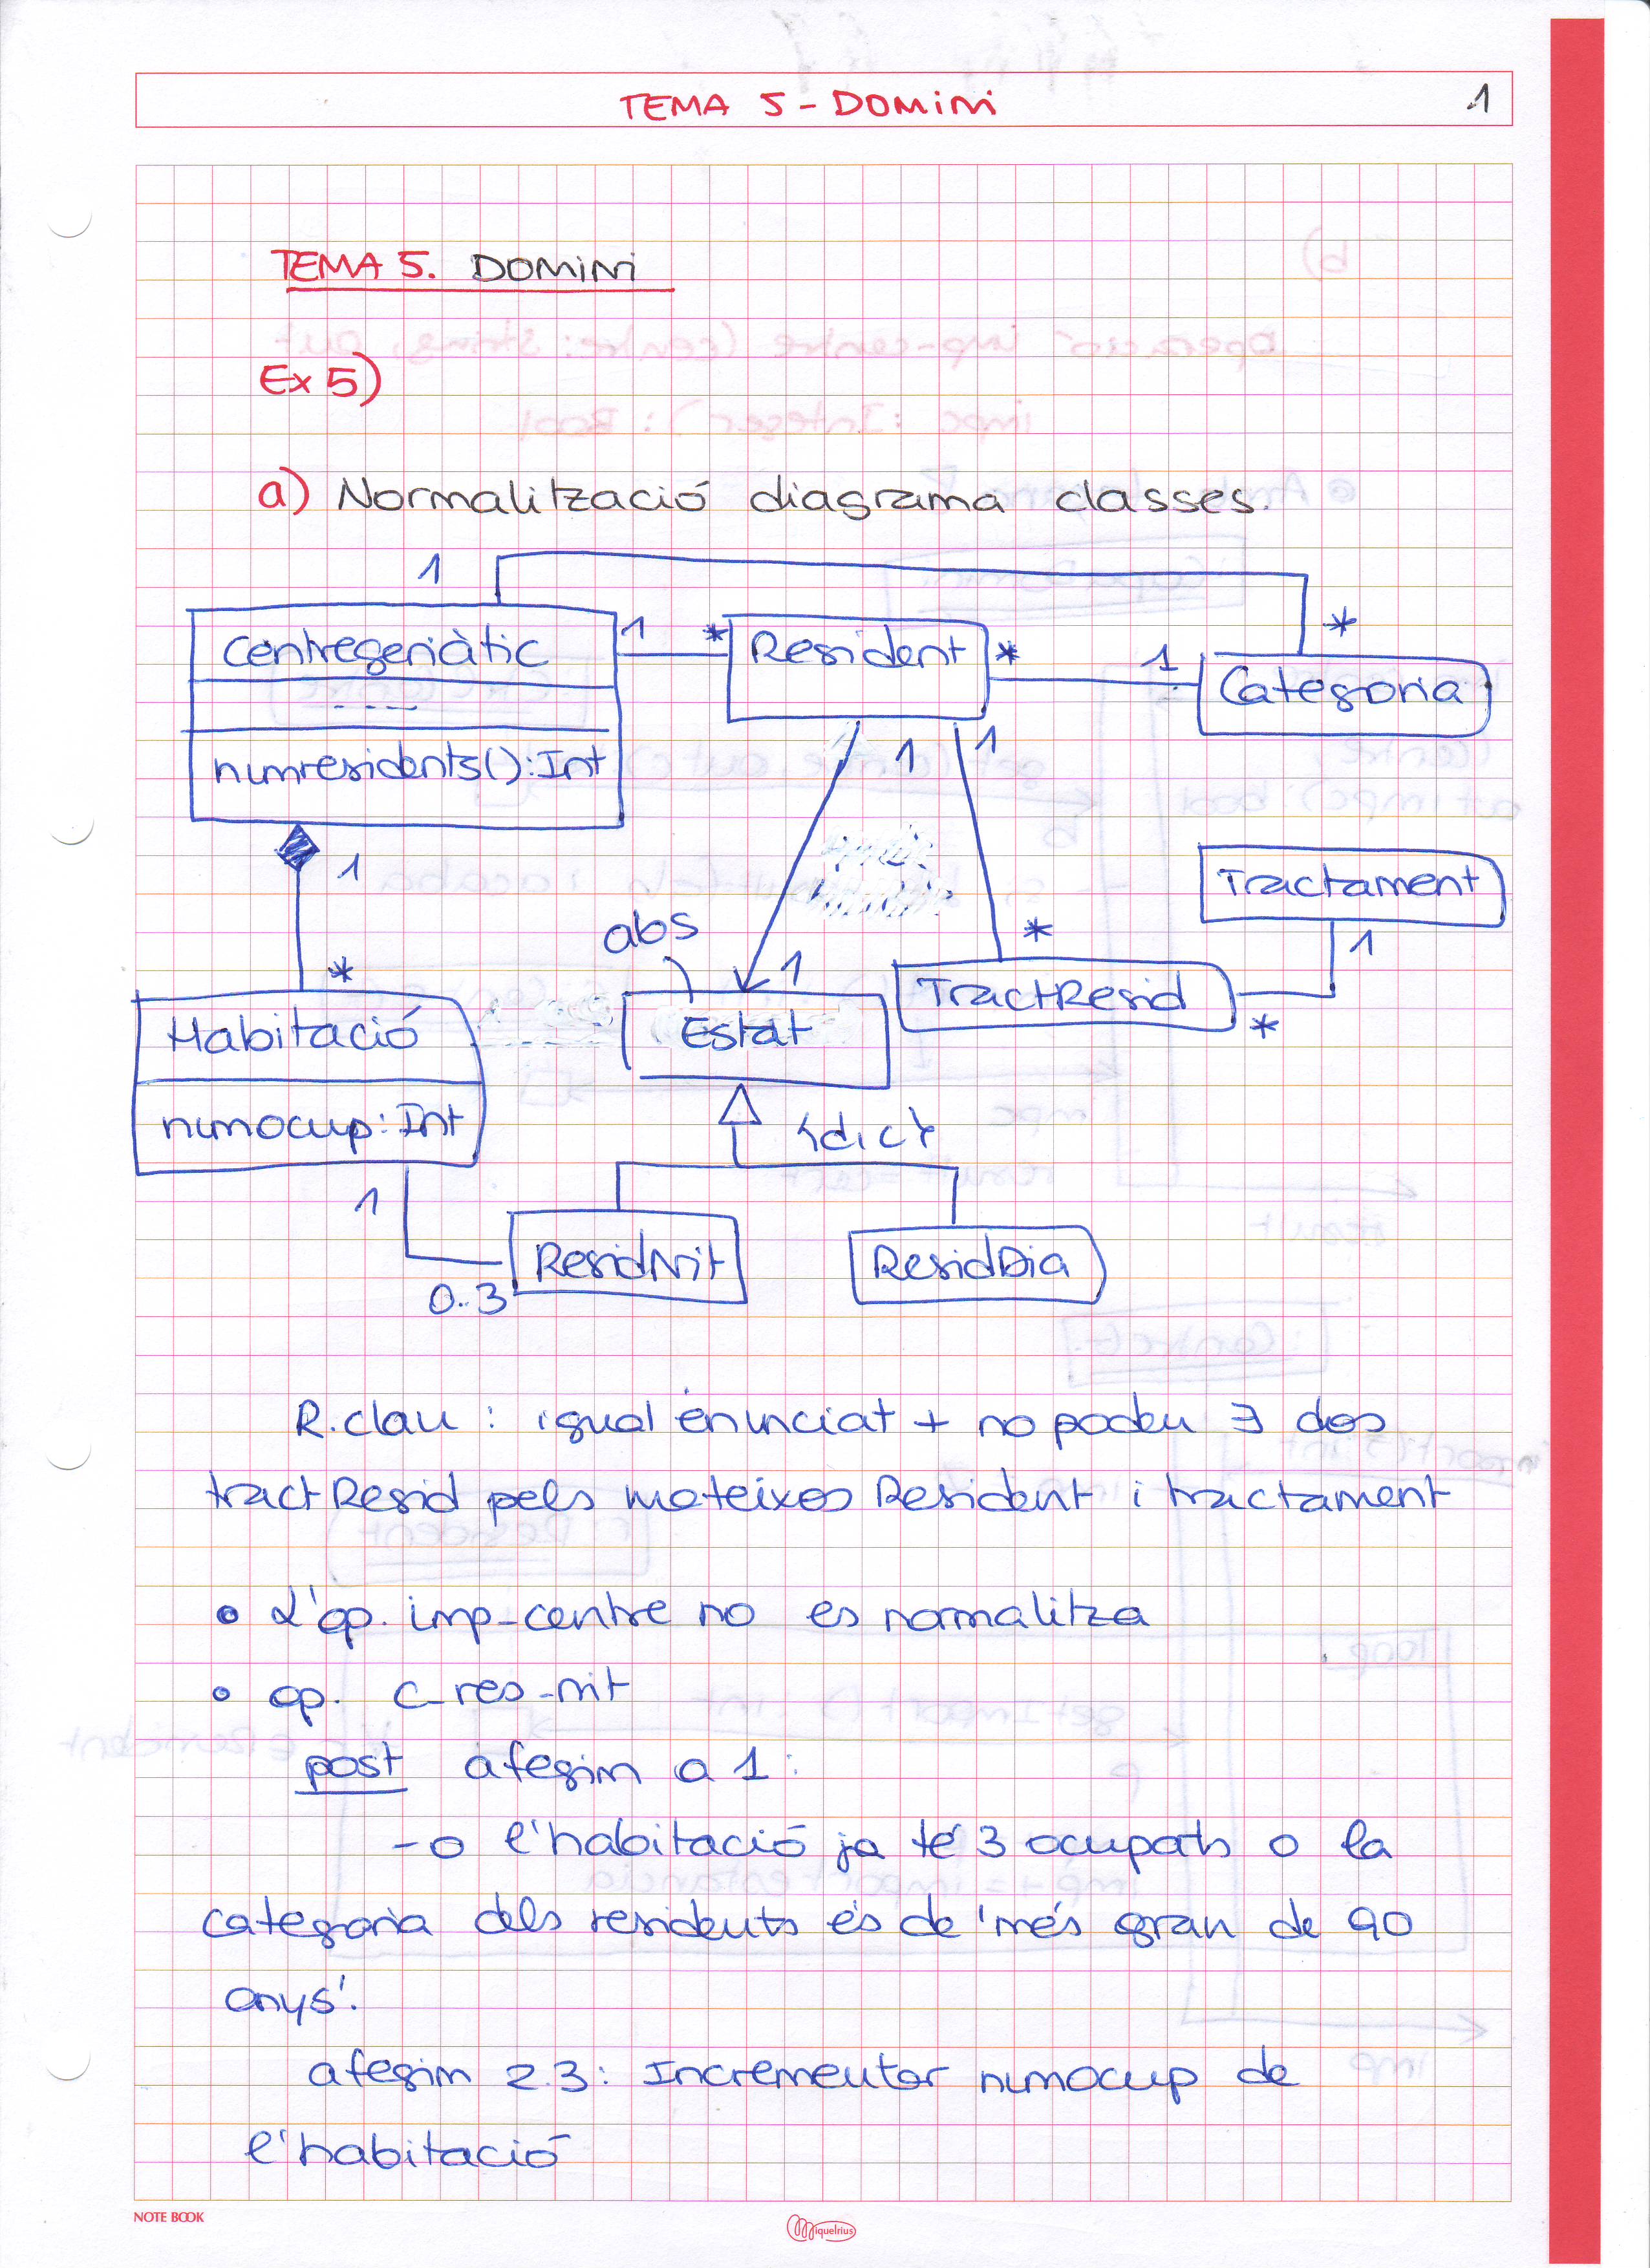 TEMA 5 - DOMINI
1
TEMA 5. DOMINI
Ex 5)
a) Normalització diagrama classes.
1
Centregeriàtic
1
*
Resident
*
1
*
Categoria
numresidents():Int
1
1
1
Tractament
abs
*
1
1
*
TractResid
*
Habitació
Estat
numocup:Int
{d,c}
1
ResidNit
ResidDia
0..3
R.clau : igual enunciat + no poden ∃ dos
tractResid pels mateixos Resident i tractament
• L'op. imp-centre no es normalitza
• op. c-res-nit
post afegim a 1:
- o l'habitació ja té 3 ocupats o la
categoria dels residents és de 'més gran de 90
anys'.
afegim 2.3: Incrementar numocup de
l'habitació
NOTE BOOK
Miquelrius